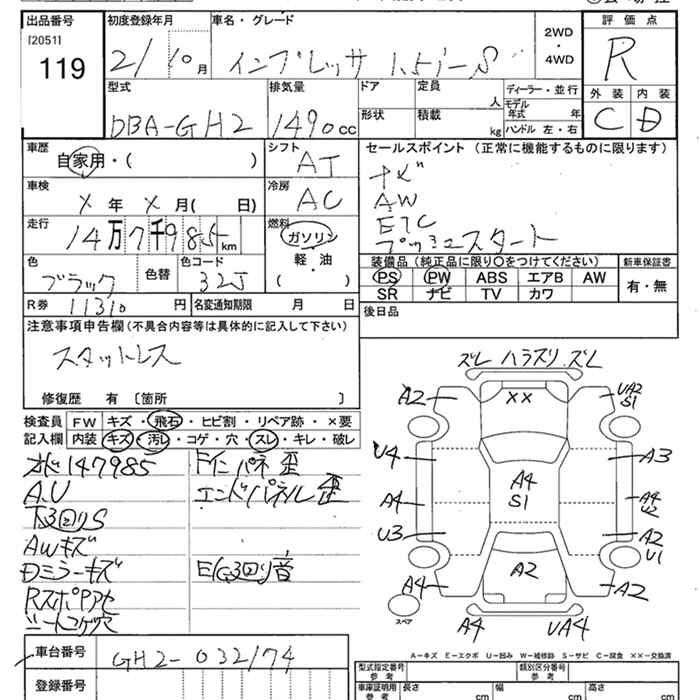 出品番号 初度登録年月 車名・グレード 2WD・4WD 評価点
[2051] 119 21/10月 インプレッサ 1.5i-S R
型式 排気量 ドア 定員 人 ディーラー・並行 外装 内装
DBA-GH2 1490cc 形状 積載 kg モデル年式 年 ハンドル 左・右 C D
車歴 自家用・( ) シフト AT セールスポイント (正常に機能するものに限ります)
ナビ
車検 X年X月(日) 冷房 AC AW
ETC
走行 14万7千985km 燃料 ガソリン 軽・油 ( ) プッシュスタート
色 ブラック 色替 色コード 32J
装備品 (純正品に限り○をつけてください) 新車保証書
PS PW ABS エアB AW 有・無
SR ナビ TV カワ
R券 11310円 名変通知期限 月 日 後日品
注意事項申告欄(不具合内容等は具体的に記入して下さい)
スタットレス
修復歴 有 〔箇所 〕
検査員記入欄 FW キズ・飛石・ヒビ割・リペア跡・×要
内装 キズ・汚レ・コゲ・穴・スレ・キレ・破レ
147985 Fインパネ歪
A.U エンドパネル歪
下回りS
AWキズ
Dミラーキズ E/G回り音
シートコゲ穴
ズレ ハラズリ ズレ
A2 XX UA2 S1
U4 A3
A4 A4 S1 A4 U2
U3 A2 U1
A4 A2 A2
スペア A4 UA4
A-キズ E-エクボ U-凹み W-補修跡 S-サビ C-腐食 XX-交換済
車台番号 GH2-032174
登録番号
型式指定番号 参考 類別区分番号 参考
車庫証明用 参考 長さ cm 幅 cm 高さ cm